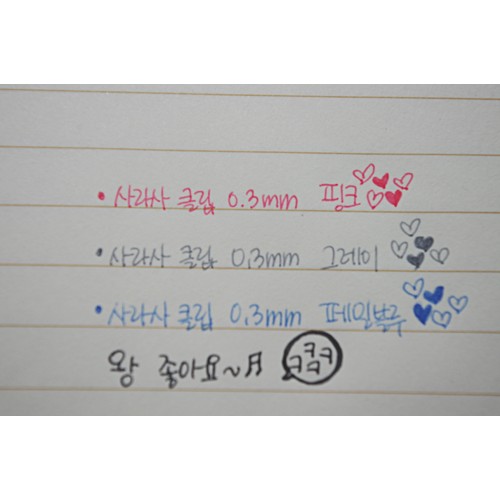 • 사라사 클립 0.3mm 핑크♡♥♡♡♥
• 사라사 클립 0.3mm 그레이 ♡♡♥♥♡
• 사라사 클립 0.3mm 페일블루 ♡♥♡♥♡
왕 좋아요~♬ ㅋㅋㅋㅋ